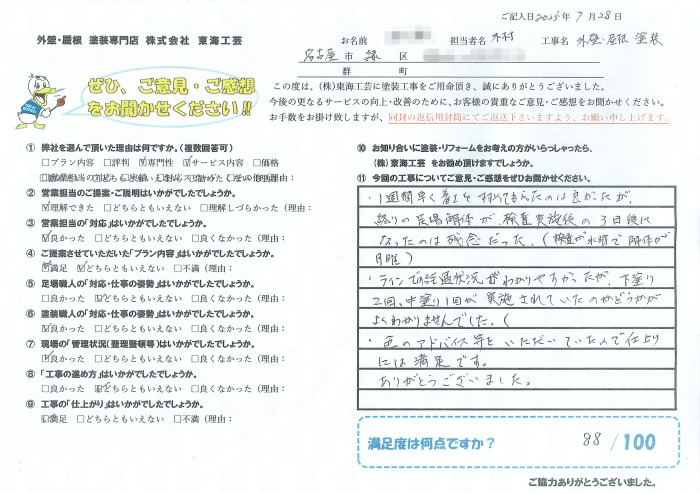 ご記入日2025年7月28日
外壁・屋根 塗装専門店 株式会社 東海工芸
お名前 担当者名 木村 工事名 外壁・屋根 塗装
名古屋市 緑 区
群 町
ぜひ、ご意見・ご感想
をお聞かせください!!
この度は、(株)東海工芸に塗装工事をご用命頂き、誠にありがとうございました。
今後の更なるサービスの向上・改善のために、お客様の貴重なご意見・ご感想をお聞かせください。
お手数をお掛け致しますが、同封の返信用封筒にてご返送下さいますよう、お願い申し上げます。
① 弊社を選んで頂いた理由は何ですか。(複数回答可)
□プラン内容 □評判 ☑専門性 ☑サービス内容 □価格
② 営業担当のご提案・ご説明はいかがでしたでしょうか。
☑理解できた □どちらともいえない □理解しづらかった(理由:
③ 営業担当の「対応」はいかがでしたでしょうか。
☑良かった □どちらともいえない □良くなかった(理由:
④ ご提案させていただいた「プラン内容」はいかがでしたでしょうか。
満足 ☑どちらともいえない □不満(理由:
⑤ 足場職人の「対応・仕事の姿勢」はいかがでしたでしょうか。
□良かった ☑どちらともいえない □良くなかった(理由:
⑥ 塗装職人の「対応・仕事の姿勢」はいかがでしたでしょうか。
☑良かった □どちらともいえない □良くなかった(理由:
⑦ 現場の「管理状況(整理整頓等)はいかがでしたでしょうか。
☑良かった □どちらともいえない □良くなかった(理由:
⑧ 「工事の進め方」はいかがでしたでしょうか。
□良かった ☑どちらともいえない □良くなかった(理由:
⑨ 工事の「仕上がり」はいかがでしたでしょうか。
☑満足 □どちらともいえない □不満(理由:
⑩ お知り合いに塗装・リフォームをお考えの方がいらっしゃったら、
(株)東海工芸 をお勧め頂けますでしょうか。
⑪ 今回の工事についてご意見・ご感想をぜひお聞かせください。
・1週間早く着工を してもらえたのは良かったが、
終りの足場解体が、検査実施後の3日後に
なったのは残念だった。(検査が水曜で解体が
月曜)
・ラインでの 状況がわかりやすかったが、下塗り
2回、中塗り1回が実施されていたのかどうかが
よくわかりませんでした。(
・色のアドバイス等をいただいていたので仕上り
には満足です。
ありがとうございました。
満足度は何点ですか? 88/100
ご協力ありがとうございました。